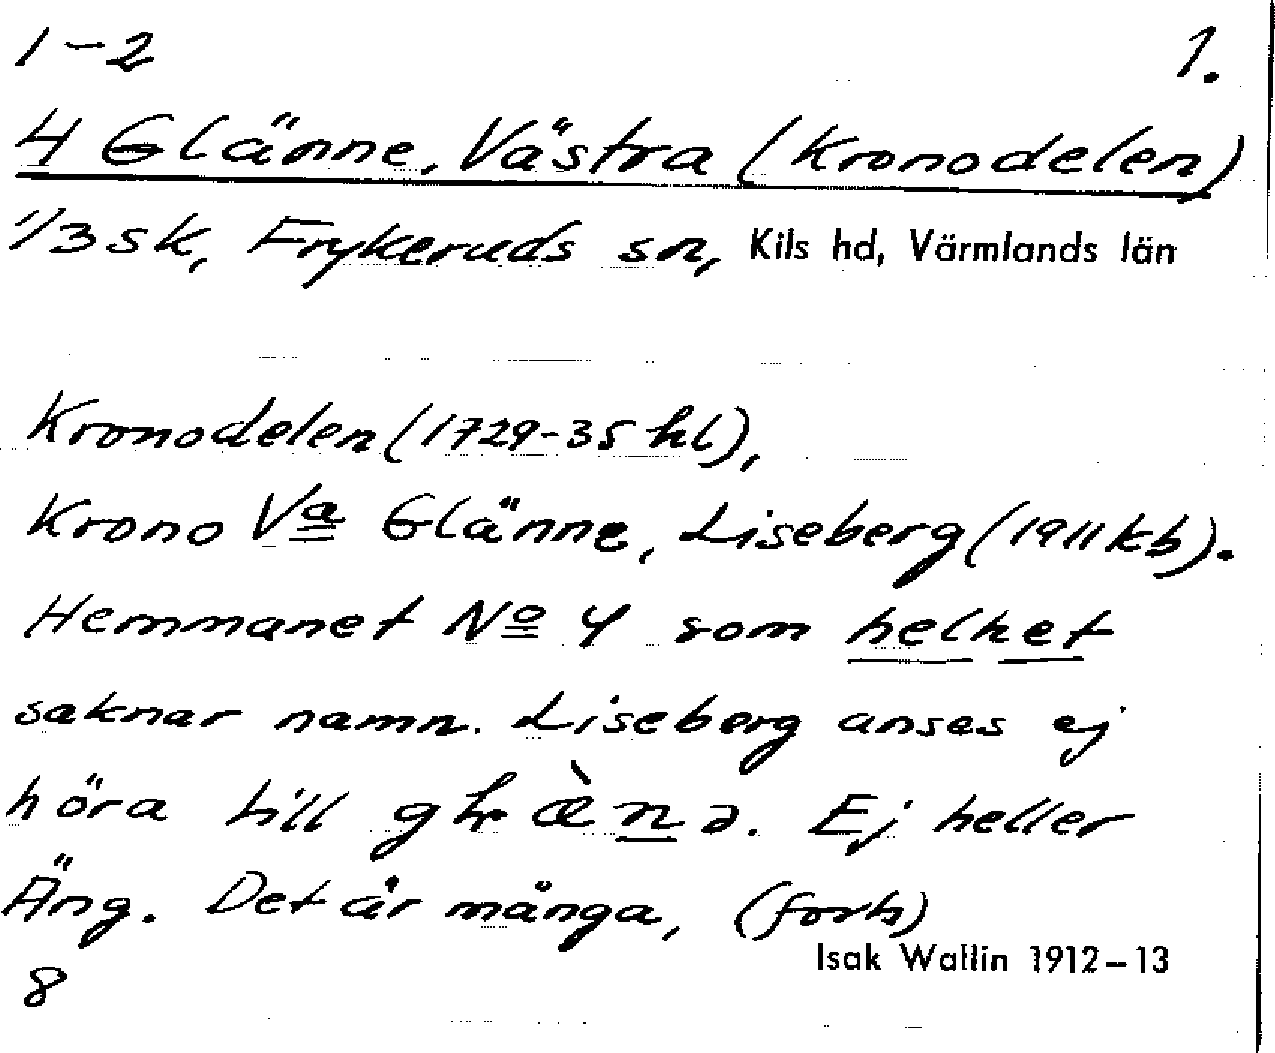 1-2 1.
4 Glänne, Västra (Kronodelen)
1/3 sk, Frykeruds sn, Kils hd, Värmlands län
Kronodelen (1729-35 hl),
Krono Va Glänne, Liseberg (1911 kb).
Hemmanet No 4 som helhet
saknar namn. Liseberg anses ej
höra till Ej heller
Äng. Det är många, (forts)
Isak Wallin 1912-13
8